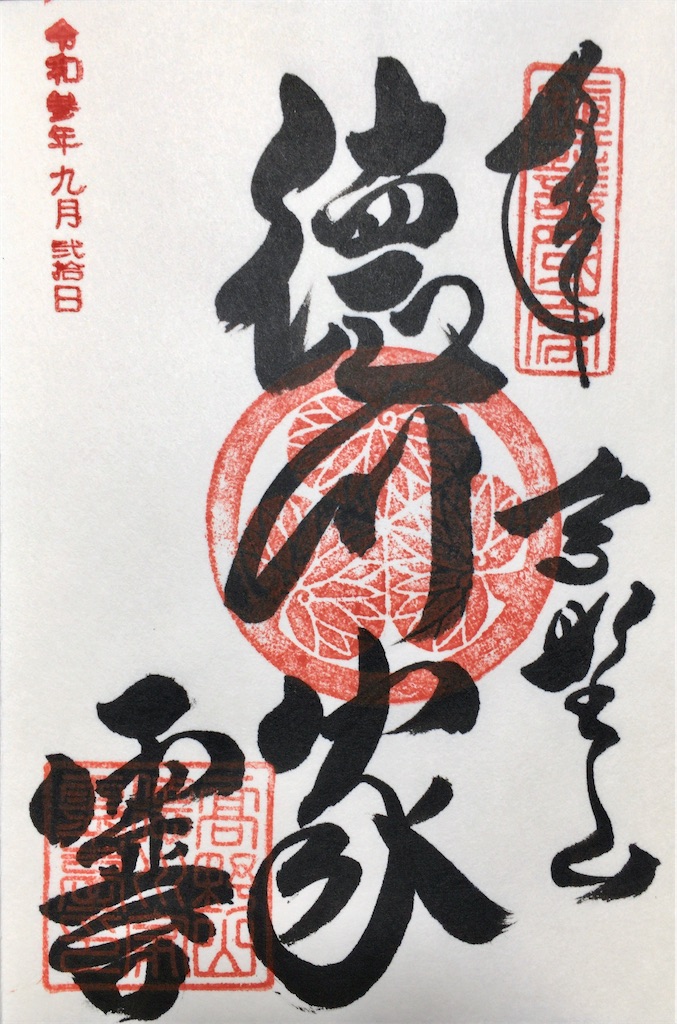 奉拝
高野山
徳川家
霊台
高野山
令和参年九月弐拾日